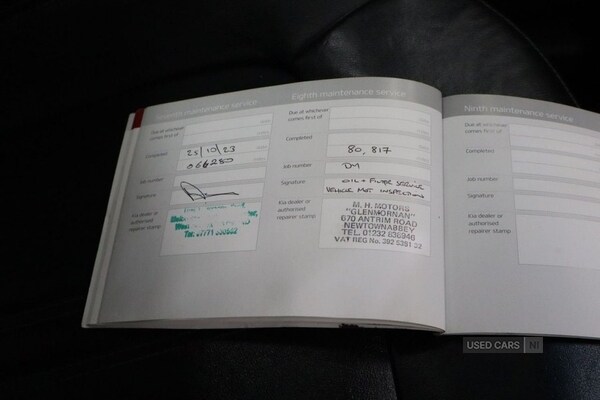 Seventh maintenance service
Due at whichever
comes first of
Completed
23/10/23
066280
Job number
Signature
Kia dealer or
authorised
repairer stamp
Eighth maintenance service
Due at whichever
comes first of
Completed
80,817
Job number
DM
Signature
OIL + FILTER SERVICE
VEHICLE MOT INSPECTIONS
Kia dealer or
authorised
repairer stamp
M. H. MOTORS
"GLENMORNAN"
670 ANTRIM ROAD
NEWTOWNABBEY
TEL. 01232
VAT REG No.
Ninth maintenance service
Due at whichever
comes first of
Completed
Job number
Signature
Kia dealer or
authorised
repairer stamp
USED CARS NI